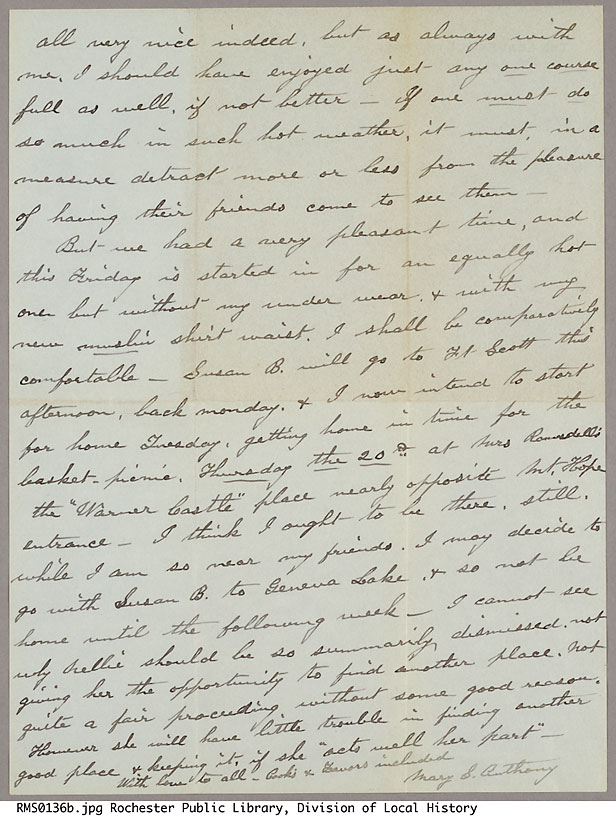 all very nice indeed, but as always with
me, I should have enjoyed just any one course
full as well, if not better – If one must do
so much in such hot weather, it must, in a
measure detract more or less from the pleasure
of having their friends come to see them –
But we had a very pleasant time, and
this Friday is started in for an equally hot
one but without my under wear, & with my
new muslin shirt waist, I shall be comparatively
comfortable – Susan B. will go to Ft Scott this
afternoon, back monday, & I now intend to start
for home Tuesday, getting home in time for the
basket-picnic, Thursday the 20th at Mrs Ramsdell's
the "Warner Castle" place nearly opposite Mt. Hope
entrance – I think I ought to be there, still,
while I am so near my friends, I may decide to
go with Susan B. to Geneva Lake, & so not be
home until the following week – I cannot see
why Nellie should be so summarily dismissed, not
giving her the opportunity to find another place. Not
quite a fair proceeding without some good reason.
However she will have little trouble in finding another
good place & keeping it, if she "acts well her part" –
With love to all – Cooks & included
Mary S. Anthony
RMS0136b.jpg Rochester Public Library, Division of Local History